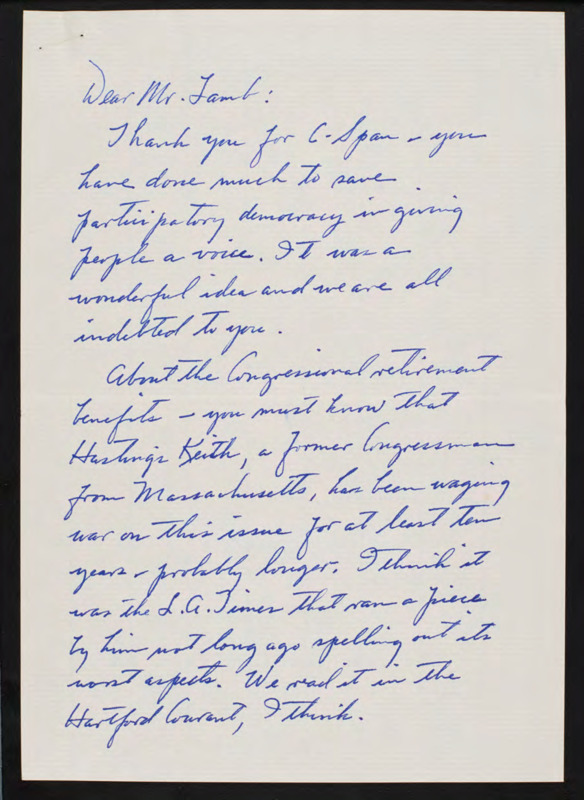 Dear Mr. Lamb:
Thank you for C-Span – you
have done much to save
participatory democracy in giving
people a voice. It was a
wonderful idea and we are all
indebted to you.
About the Congressional retirement
benefits – you must know that
Hastings Keith, a former Congressman
from Massachusetts, has been waging
war on this issue for at least ten
years – probably longer. I think it
was the L.A. Times that ran a piece
by him not long ago spelling out its
worst aspects. We read it in the
Hartford Courant, I think.